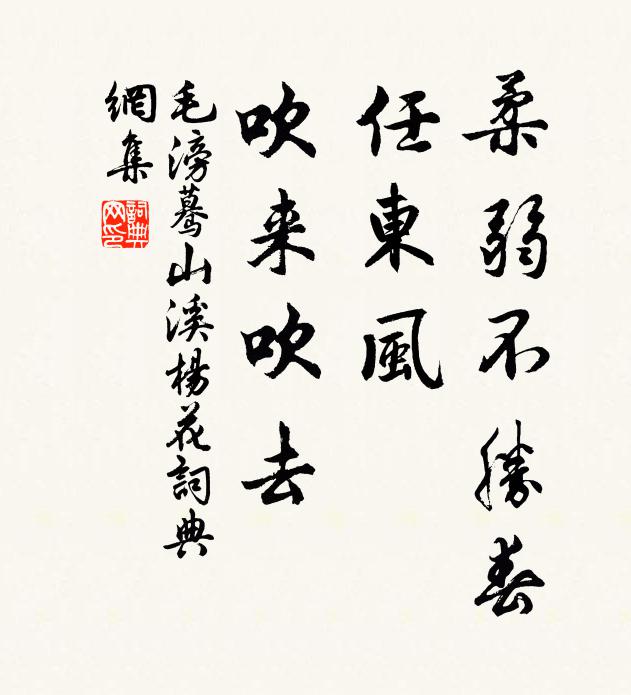 柔弱不勝春
任東風
吹来吹去
毛滂驀山溪楊花詞典
網集
詞典网印